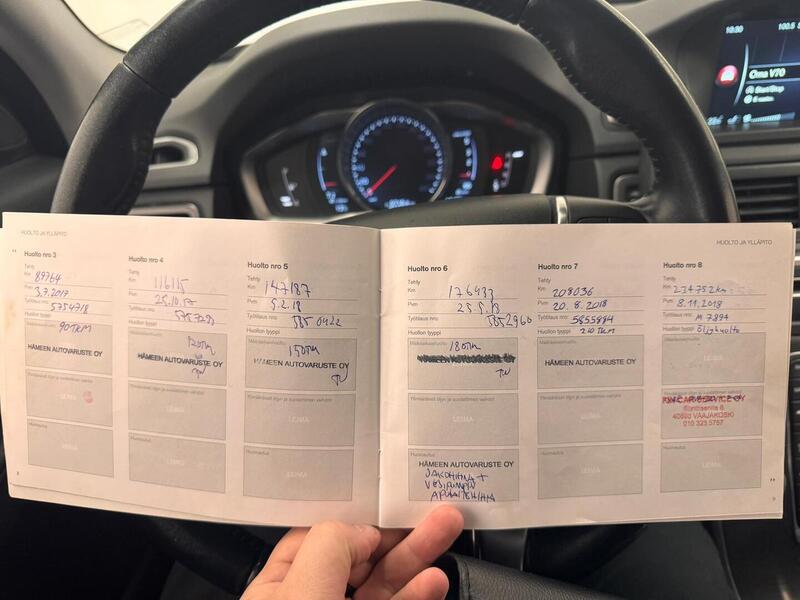 10:30
100.5
Oma V70
Start/Stop
HUOLTO JA YLLÄPITO
Huolto nro 3
Tehty
Km 89764
Pvm 3.7.2017
Työtilaus nro 5754718
Huollon tyyppi
90TKM
HÄMEEN AUTOVARUSTE OY
LEIMA
Huomautus
LEIMA
Huolto nro 4
Tehty
Km 116115
Pvm 25.10.17
Työtilaus nro
Huollon tyyppi
120TKM
HÄMEEN AUTOVARUSTE OY
LEIMA
Huomautus
LEIMA
Huolto nro 5
Tehty
Km 147187
Pvm 5.2.18
Työtilaus nro
Huollon tyyppi
150TKM
HÄMEEN AUTOVARUSTE OY
LEIMA
Huomautus
LEIMA
8
HUOLTO JA YLLÄPITO
Huolto nro 6
Tehty
Km 176433
Pvm 25.5.18
Työtilaus nro 5852960
Huollon tyyppi
Määräaikaishuolto
180TKM
LEIMA
Huomautus
HÄMEEN AUTOVARUSTE OY
JAKOHIHNA +
VESIPUMPPU
APULAITEHIHNA
Huolto nro 7
Tehty
Km 208036
Pvm 20.8.2018
Työtilaus nro 5855884
Huollon tyyppi 210TKM
Määräaikaishuolto
HÄMEEN AUTOVARUSTE OY
LEIMA
Huomautus
LEIMA
Huolto nro 8
Tehty
Km 234752km
Pvm 8.11.2018
Työtilaus nro M7894
Huollon tyyppi Öljyhuolto
Määräaikaishuolto
LEIMA
40800 VAAJAKOSKI
010 323 5757
Huomautus
LEIMA
9